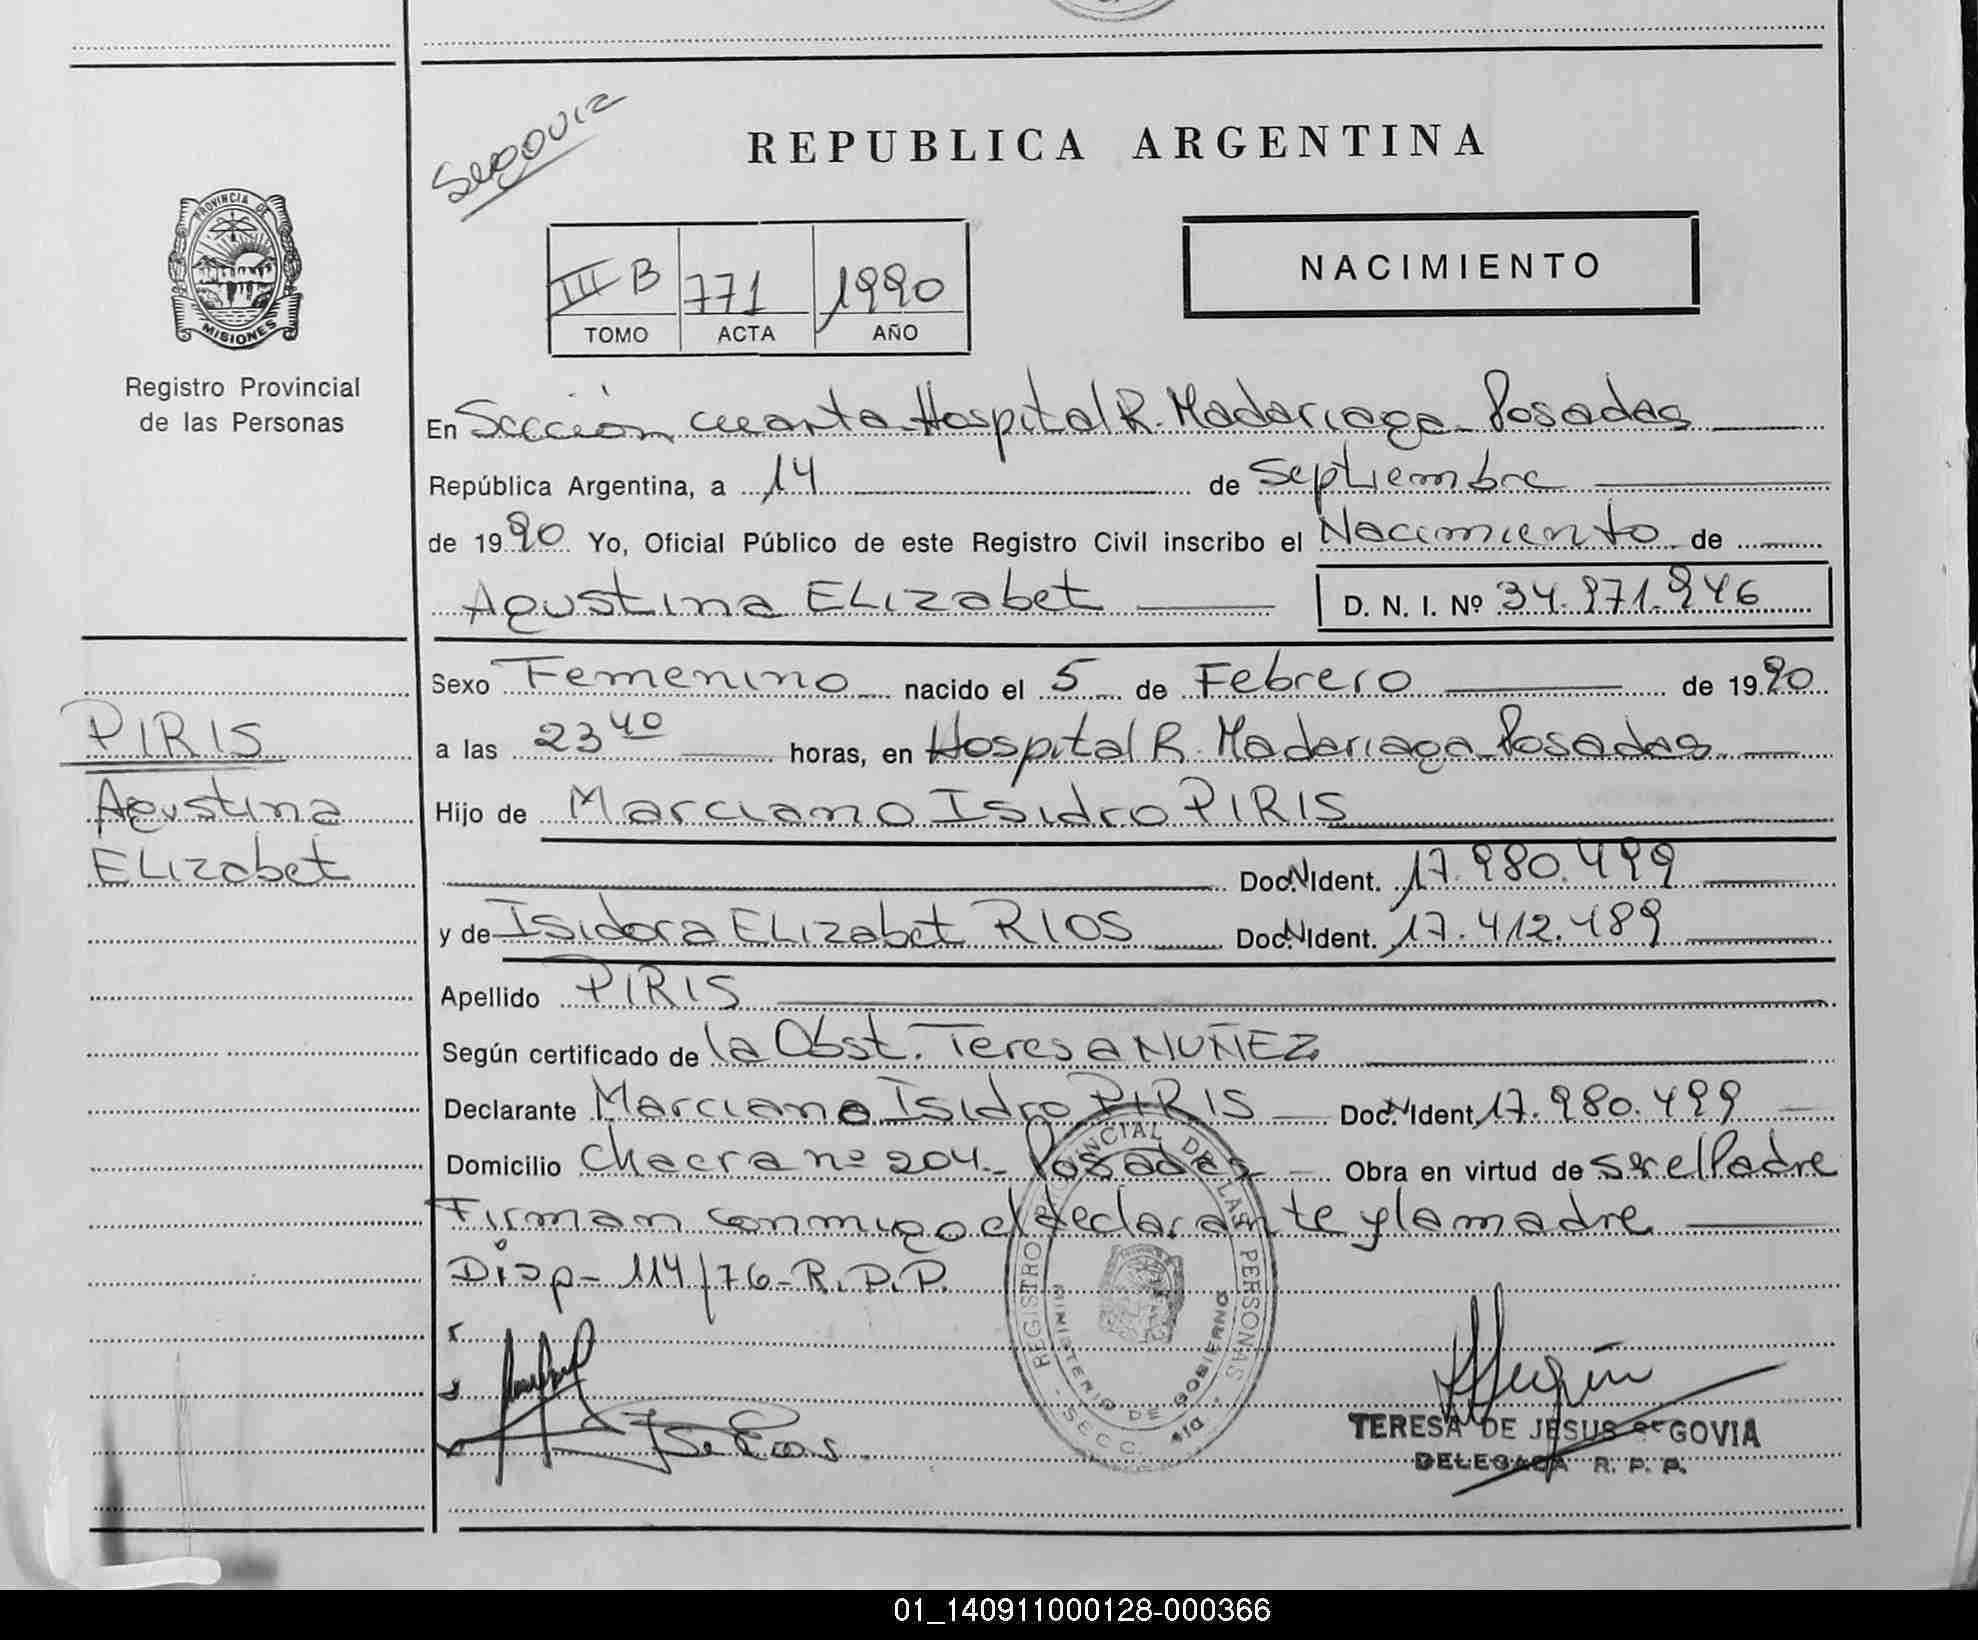 Segovia
REPUBLICA ARGENTINA
PROVINCIA DE
MISIONES
Registro Provincial
de las Personas
III B 771 1990
TOMO ACTA AÑO
NACIMIENTO
En Sección cuarta Hospital R. Madariaga Posadas
República Argentina, a 14 de Septiembre
de 1990 Yo, Oficial Público de este Registro Civil inscribo el Nacimiento de
Agustina ELizabet D. N. I. Nº 34.971.946
PIRIS
Agustina
ELizabet
Sexo Femenino nacido el 5 de Febrero de 1990
a las 23 40 horas, en Hospital R. Madariaga Posadas
Hijo de Marciano Isidro PIRIS
Doc.N.Ident. 17.980.499
y de Isidora ELizabet RIOS Doc.N.Ident. 17.412.489
Apellido PIRIS
Según certificado de la Obst. Teresa NUÑEZ
Declarante Marciano Isidro PIRIS Doc.N.Ident. 17.980.499
Domicilio Chacra nº 204- Posadas Obra en virtud de ser el Padre
Firman conmigo el declarante y la madre
Disp- 114/76-R.P.P.
REGISTRO PROVINCIAL DE LAS PERSONAS
MINISTERIO DE GOBIERNO
SECC. 4ta
TERESA DE JESUS SEGOVIA
DELEGADA R. P. P.
01_140911000128-000366